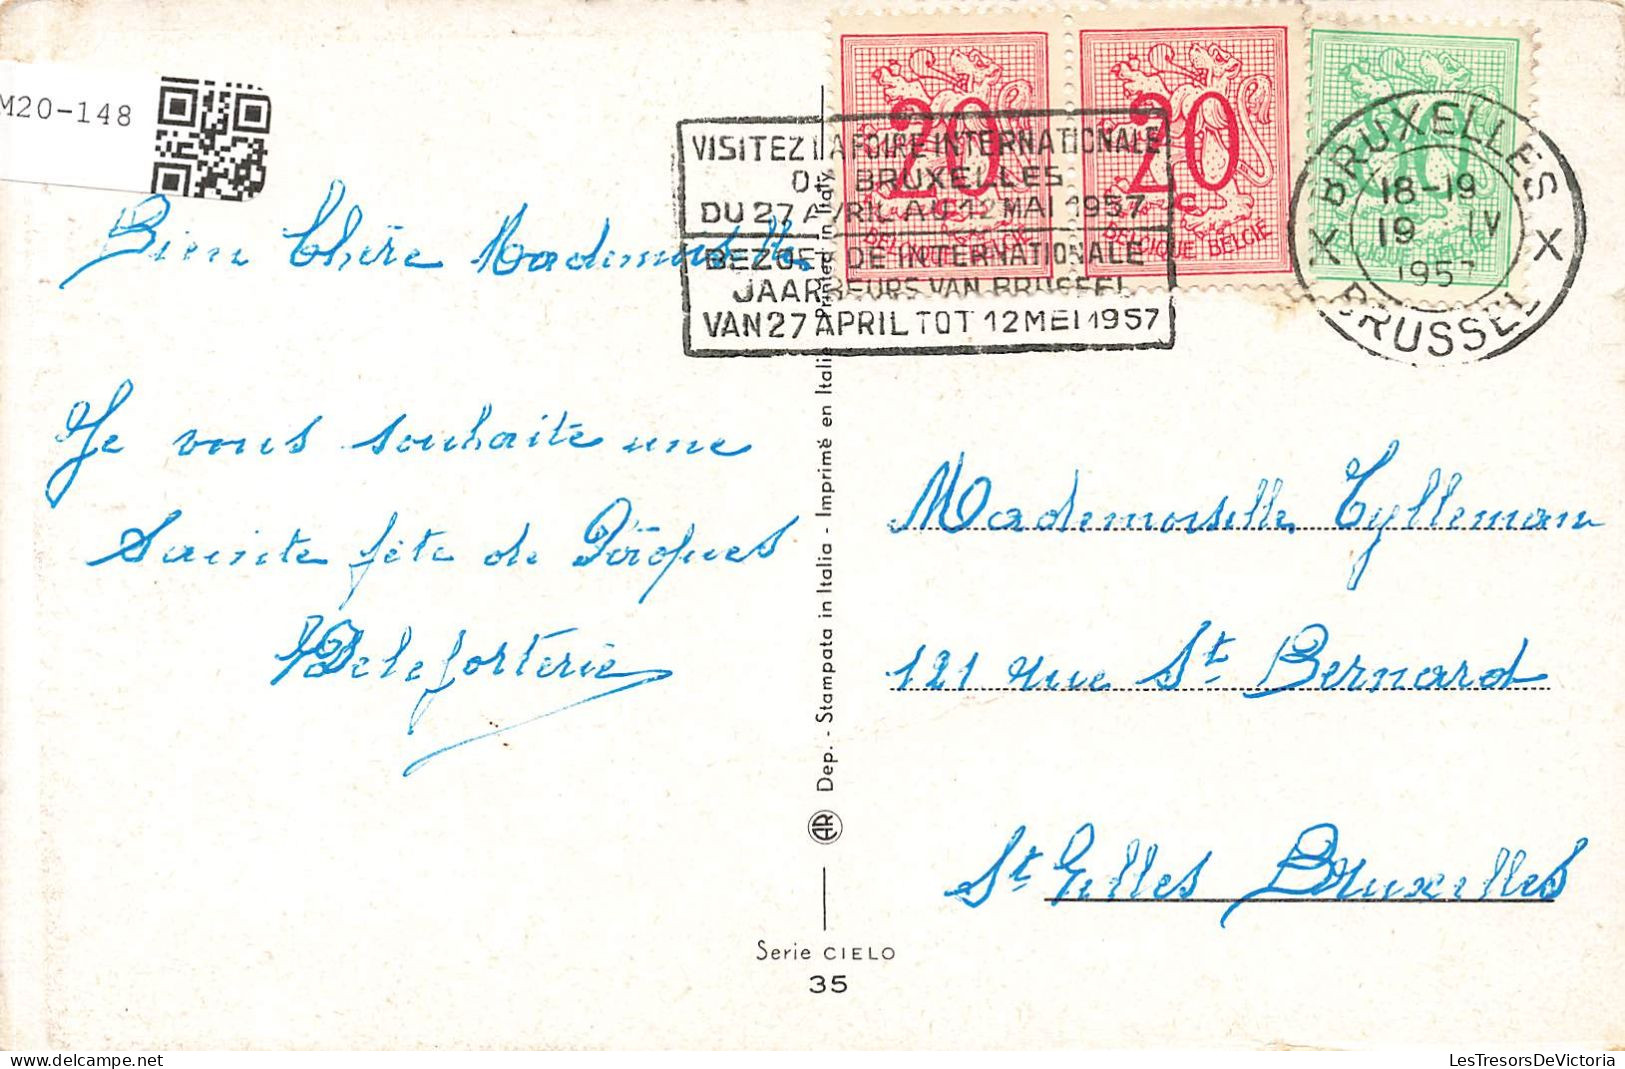 M20-148
VISITEZ LA FOIRE INTERNATIONALE
DE BRUXELLES
DU 27 AVRIL AU 12 MAI 1957
BEZOEKT DE INTERNATIONALE
JAARBEURS VAN BRUSSEL
VAN 27 APRIL TOT 12 MEI 1957
20
BELGIQUE BELGIË
20 c
BELGIQUE BELGIË
BELGIQUE BELGIË
X BRUXELLES X
18-19
19 IV
1957
BRUSSEL
Bien Chère Mademoiselle
Je vous souhaite une
Sainte fête de Pâques
Dep. - Stampata in Italia - Imprimé en Italie - Printed in Italy
Mademoiselle Tylleman
121 rue St. Bernard
St Gilles Bruxelles
AR
Serie CIELO
35
LesTresorsDeVictoria